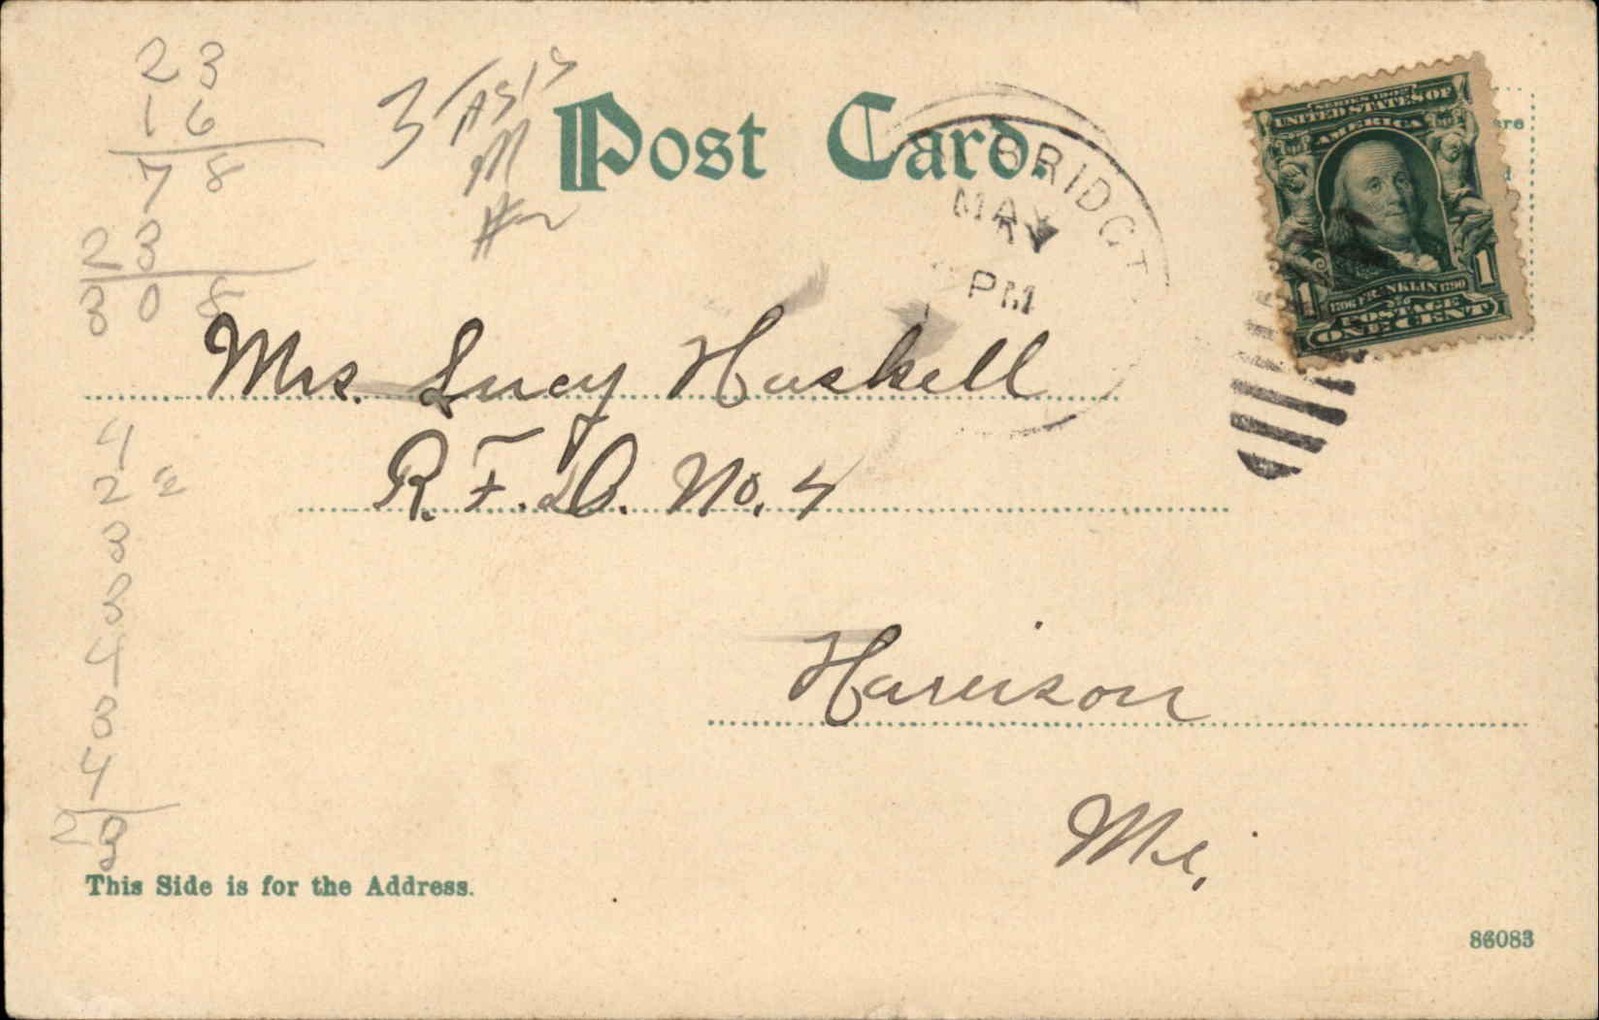 23
16
78
23
308
3
Post Card.
BRIDGT
MAY
PM
SERIES 1902
UNITED STATES OF
AMERICA
1 1
1706 FRANKLIN 1790
POSTAGE
ONE CENT
Mrs. Lucy Haskell
R. F. D. No. 4
Harrison
Me.
4
2 2
3
3
4
3
4
23
This Side is for the Address.
86083